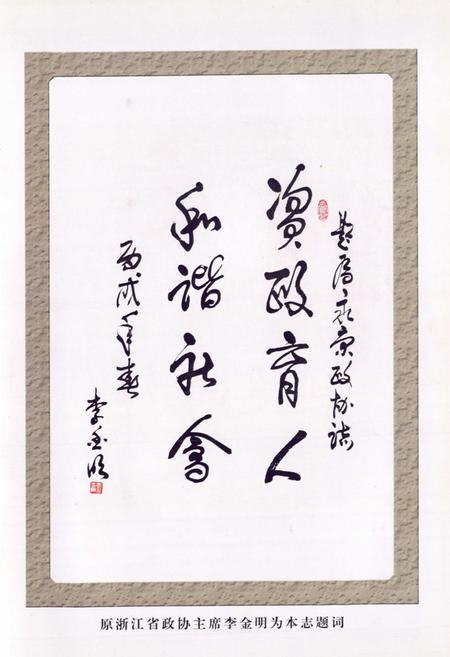 题永康政协誌
資政育人
和谐社會
丙戌年春
李金明
原浙江省政协主席李金明为本志题词